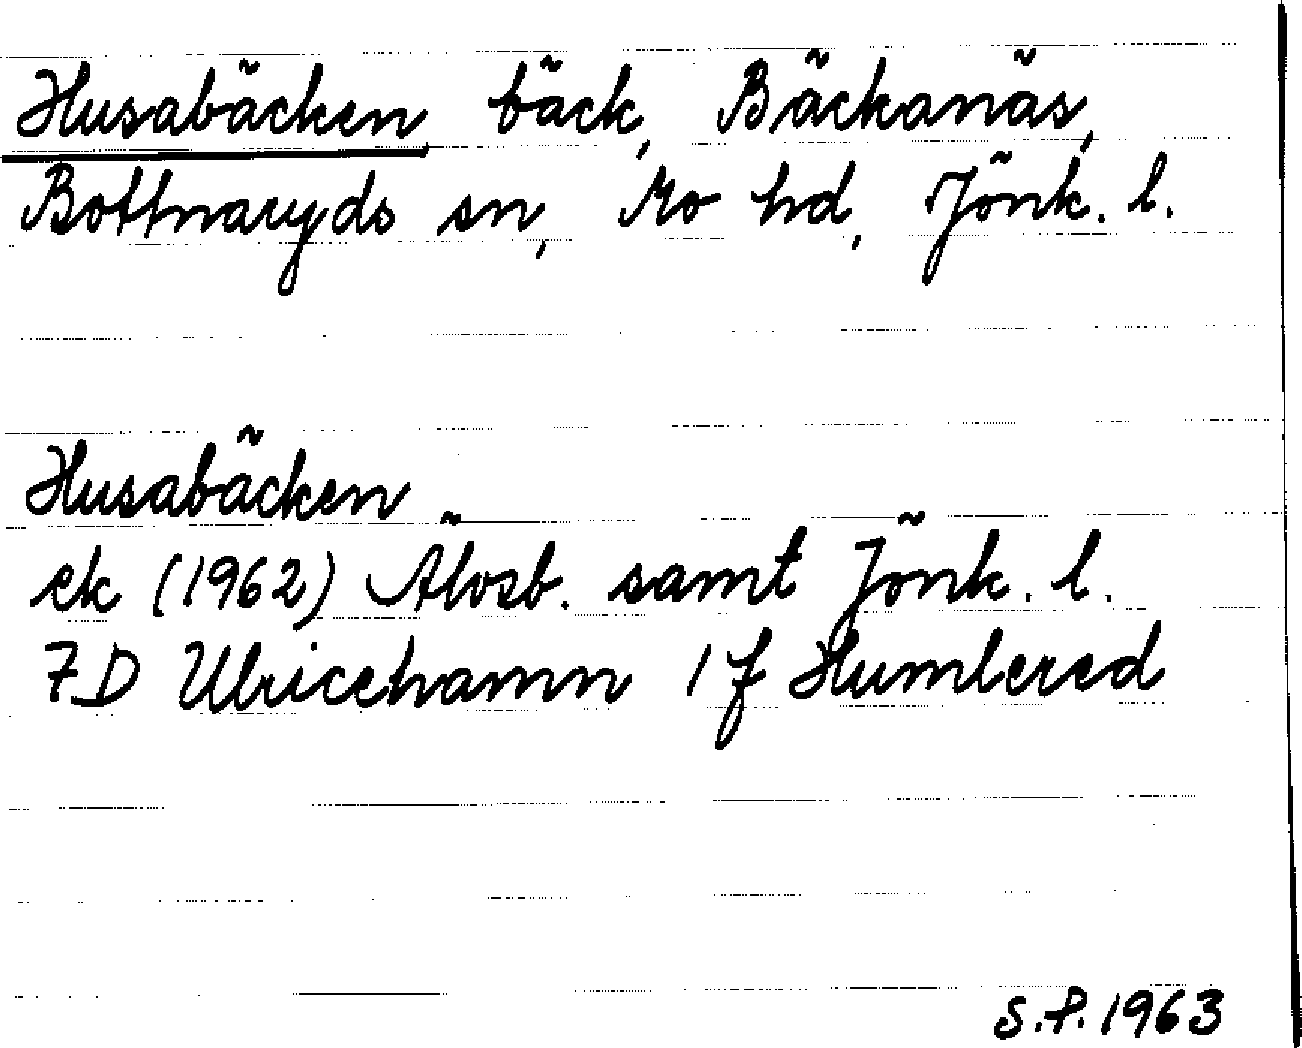 Husabäcken, bäck, Bäckanäs,
Bottnaryds sn, Mo hd, Jönk. l.
Husabäcken
ek (1962) Älvsb. samt Jönk. l.
7D Ulricehamn 1 f Humlered
S.F. 1963